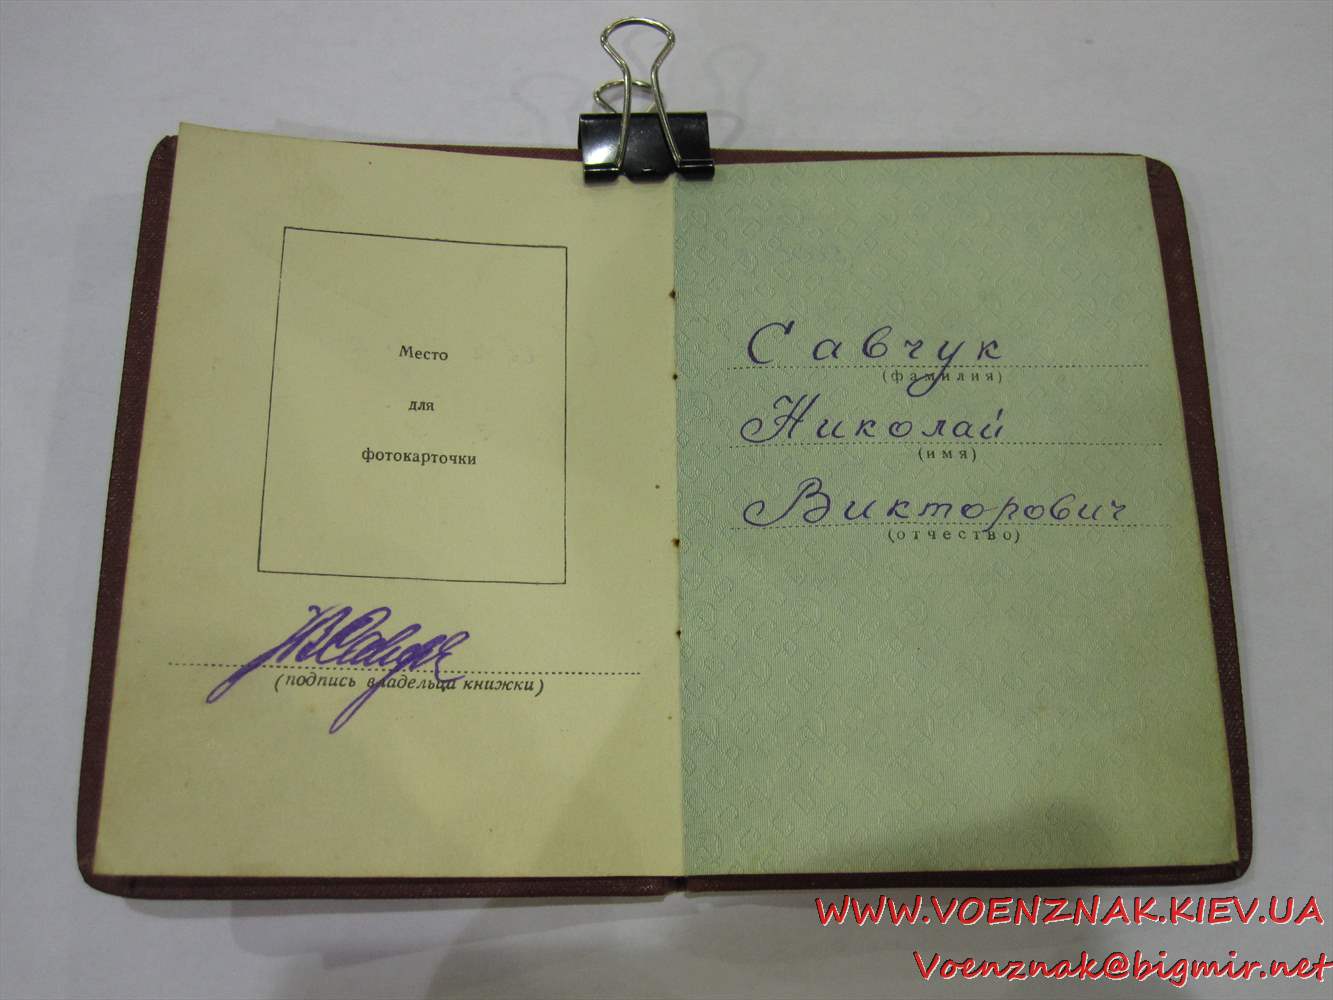 Место
для
фотокарточки
(подпись владельца книжки)
Савчук
(фамилия)
Николай
(имя)
Викторович
(отчество)
WWW.VOENZNAK.KIEV.UA
Voenznak@bigmir.net